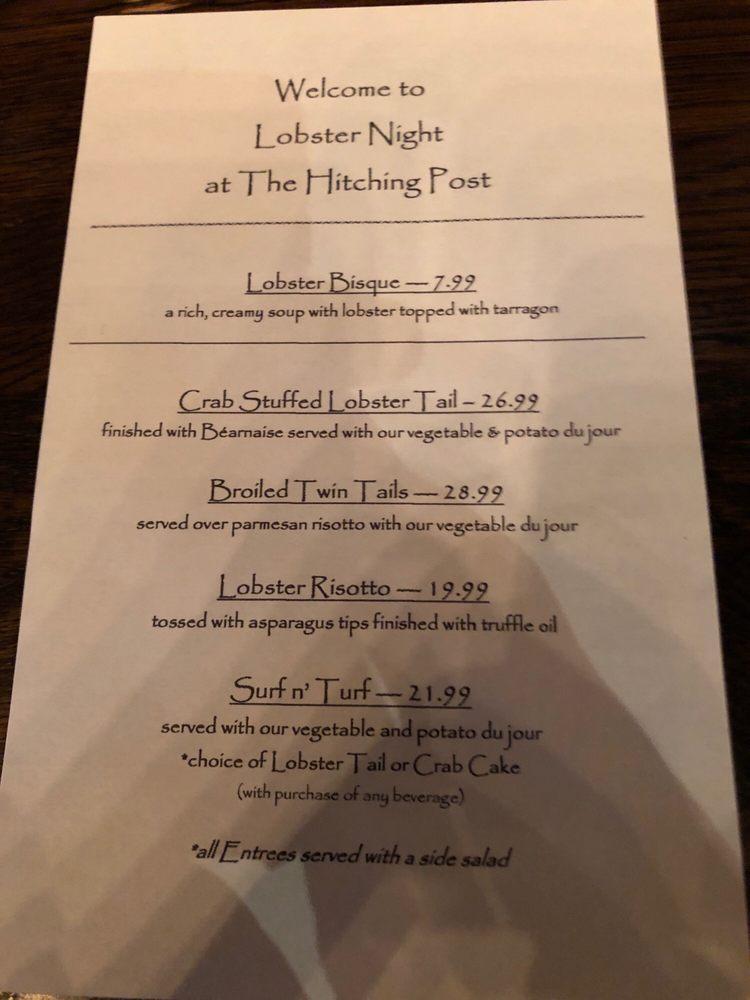 Welcome to
Lobster Night
at The Hitching Post
Lobster Bisque — 7.99
a rich, creamy soup with lobster topped with tarragon
Crab Stuffed Lobster Tail – 26.99
finished with Béarnaise served with our vegetable & potato du jour
Broiled Twin Tails — 28.99
served over parmesan risotto with our vegetable du jour
Lobster Risotto — 19.99
tossed with asparagus tips finished with truffle oil
Surf n' Turf — 21.99
served with our vegetable and potato du jour
*choice of Lobster Tail or Crab Cake
(with purchase of any beverage)
*all Entrees served with a side salad